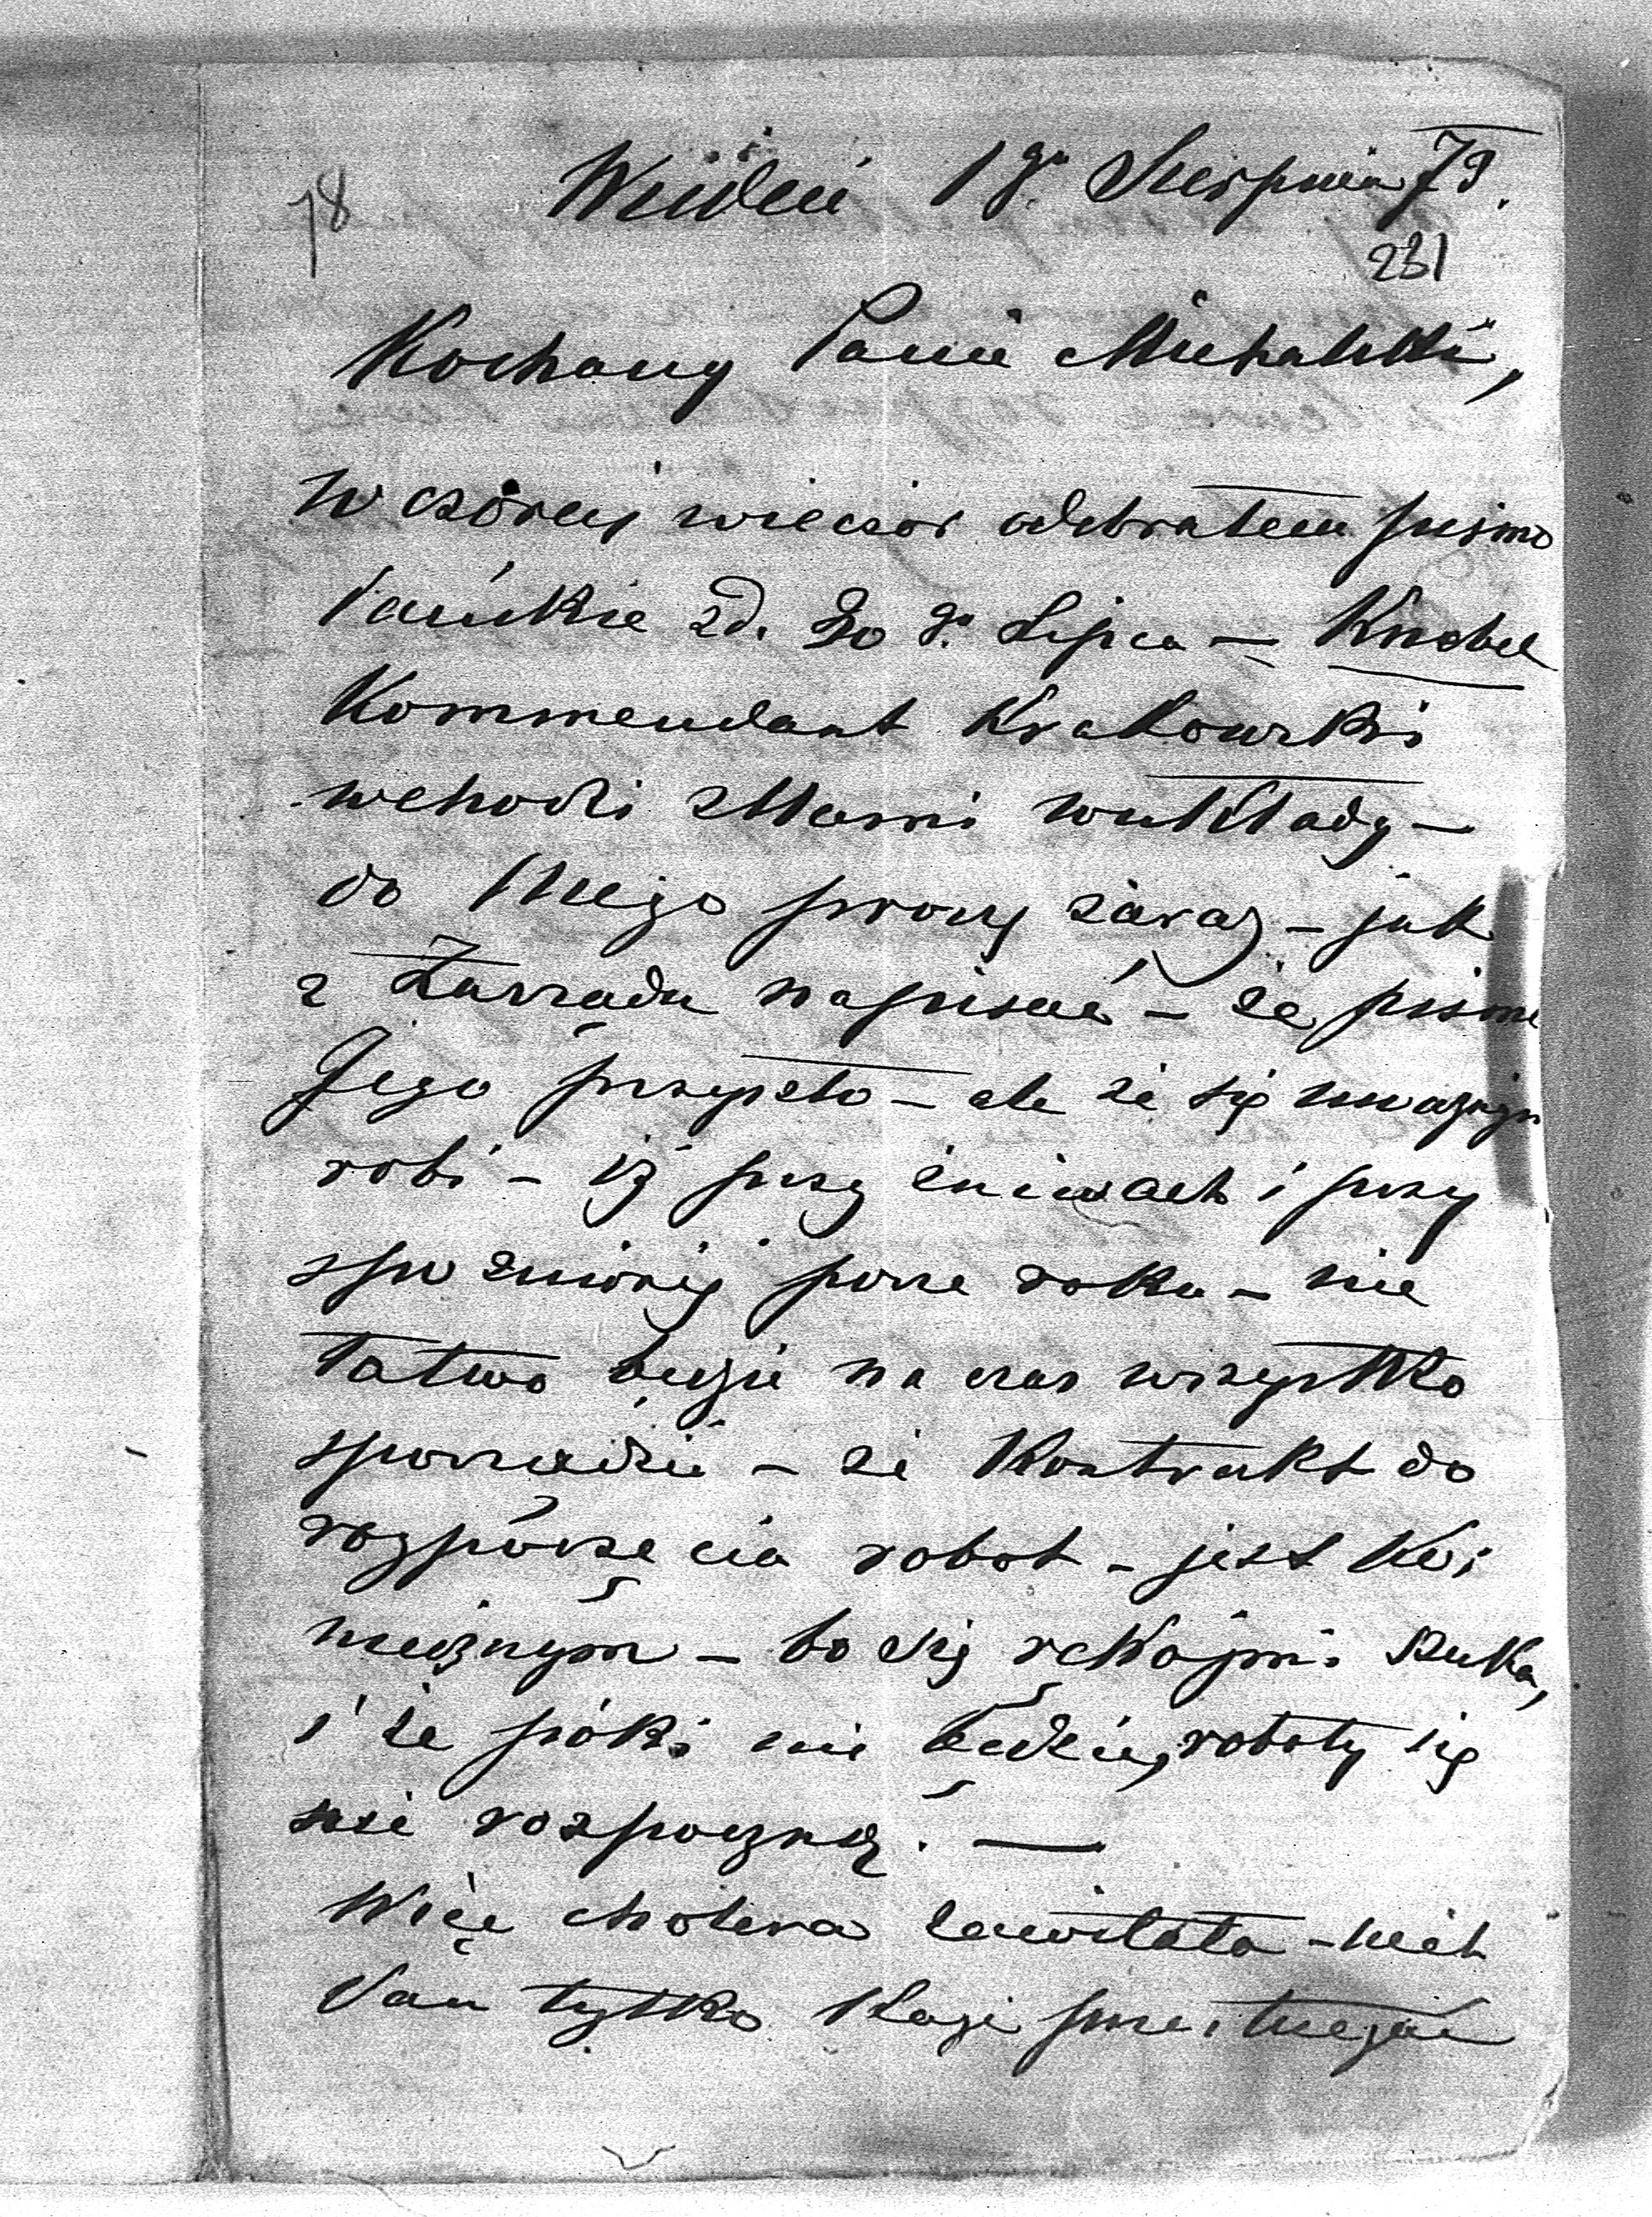 Wiédeń 1go Sierpnia 73.
78
231
Kochany Panie Michalski,
Wczoraj wieczór odebrałem pismo
Pańskie zd. 30 go Lipca — Knobel
Kommendant Krakowski
wchodzi z Nami w układy —
do Niego proszę zaraz — jak
z Zarządu napisać — że pismo
Jego przyszło — ale że się uwagę
robi — iż przy żniwach i przy
spóźnionej porze roku — nie
łatwo będzie na czas wszystko
sporządzić — że Kontrakt do
rozpoczęcia robot — jest Ko-
niecznym — bo się rękojmi szuka,
i że póki nie będzie, roboty się
nie rozpoczną. —
Więc cholera zawitała — niech
Pan tylko każe przestrzegać